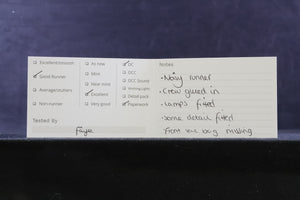 Excellent/smooth
Good Runner
Average/stutters
Non-runner
Tested By
Faye
As new
Mint
Near mint
Excellent
Very good
DC
DCC
DCC Sound
Working Light
Detail pack
Paperwork
Notes
- Noisy runner
- Crew glued in
- Lamps fitted
- some detail fitted
front one bag missing